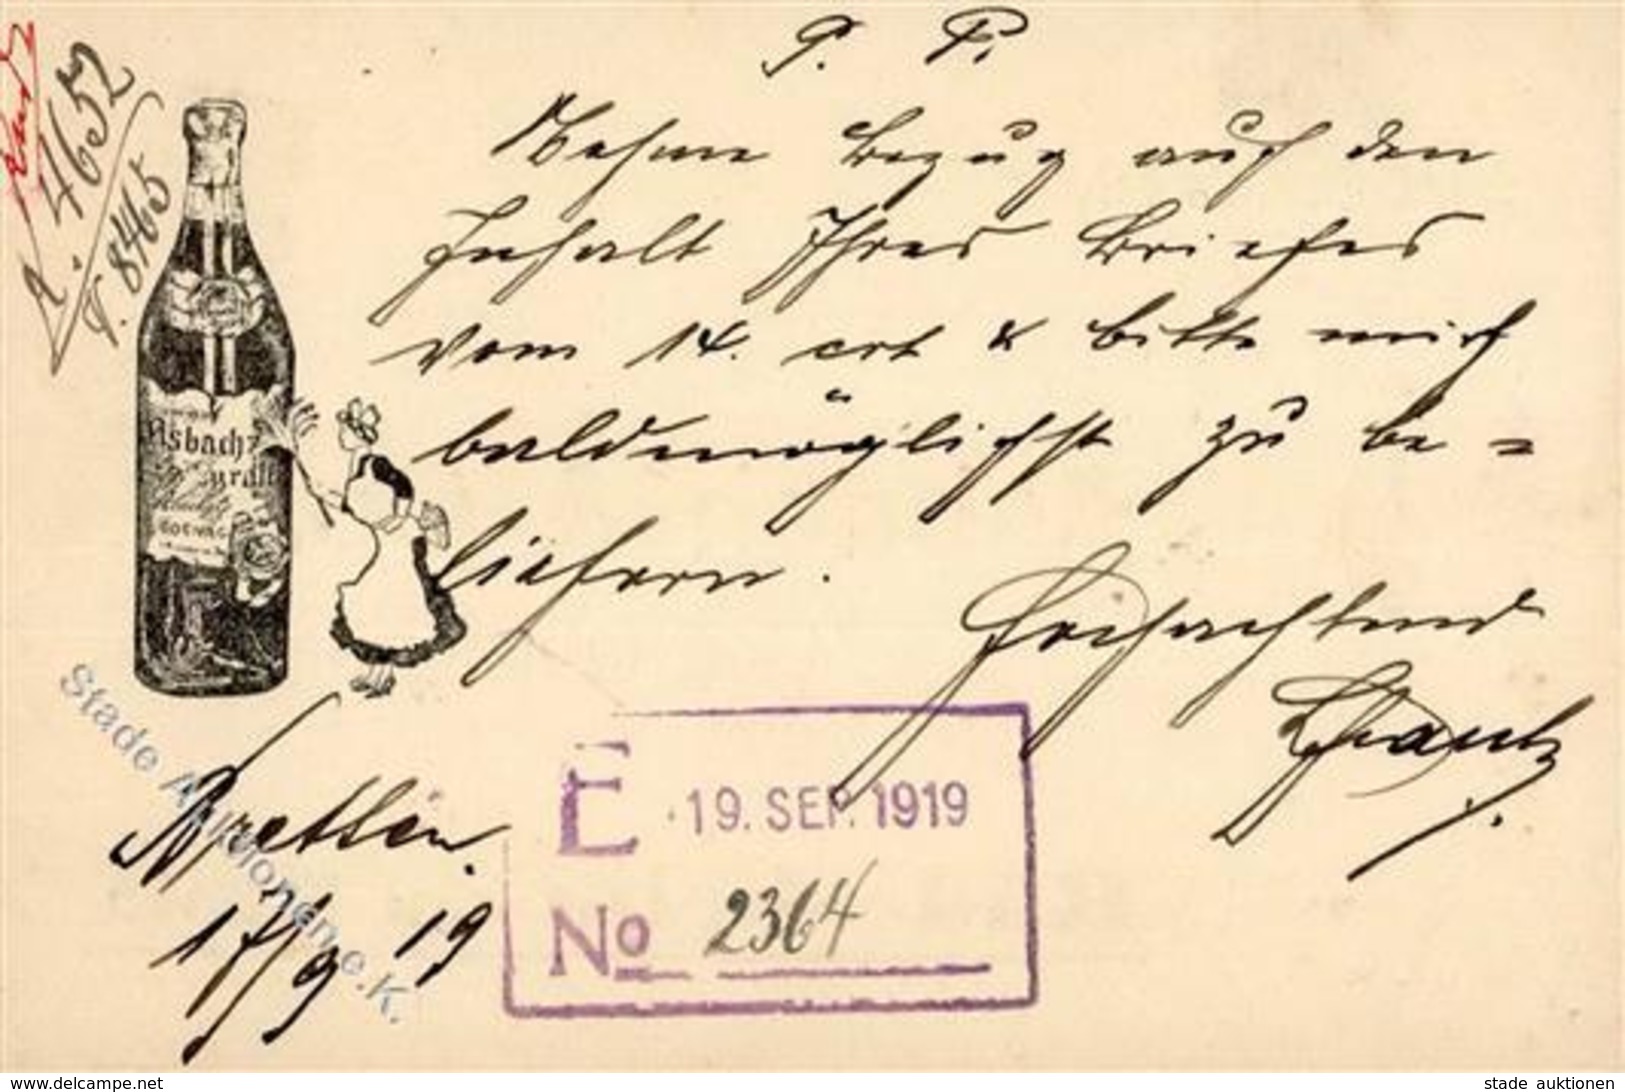 P. P.
Nehme Bezug auf den
Inhalt Ihres Briefes
vom 14. crt & bitte mich
baldmöglichst zu be =
liefern.
Hochachtend
A. 4652
P. 8465
Asbach
COGNAC
17/9 19
E 19. SEP. 1919
No 2364
Stade Auktionen e.K.
www.delcampe.net
stade auktionen